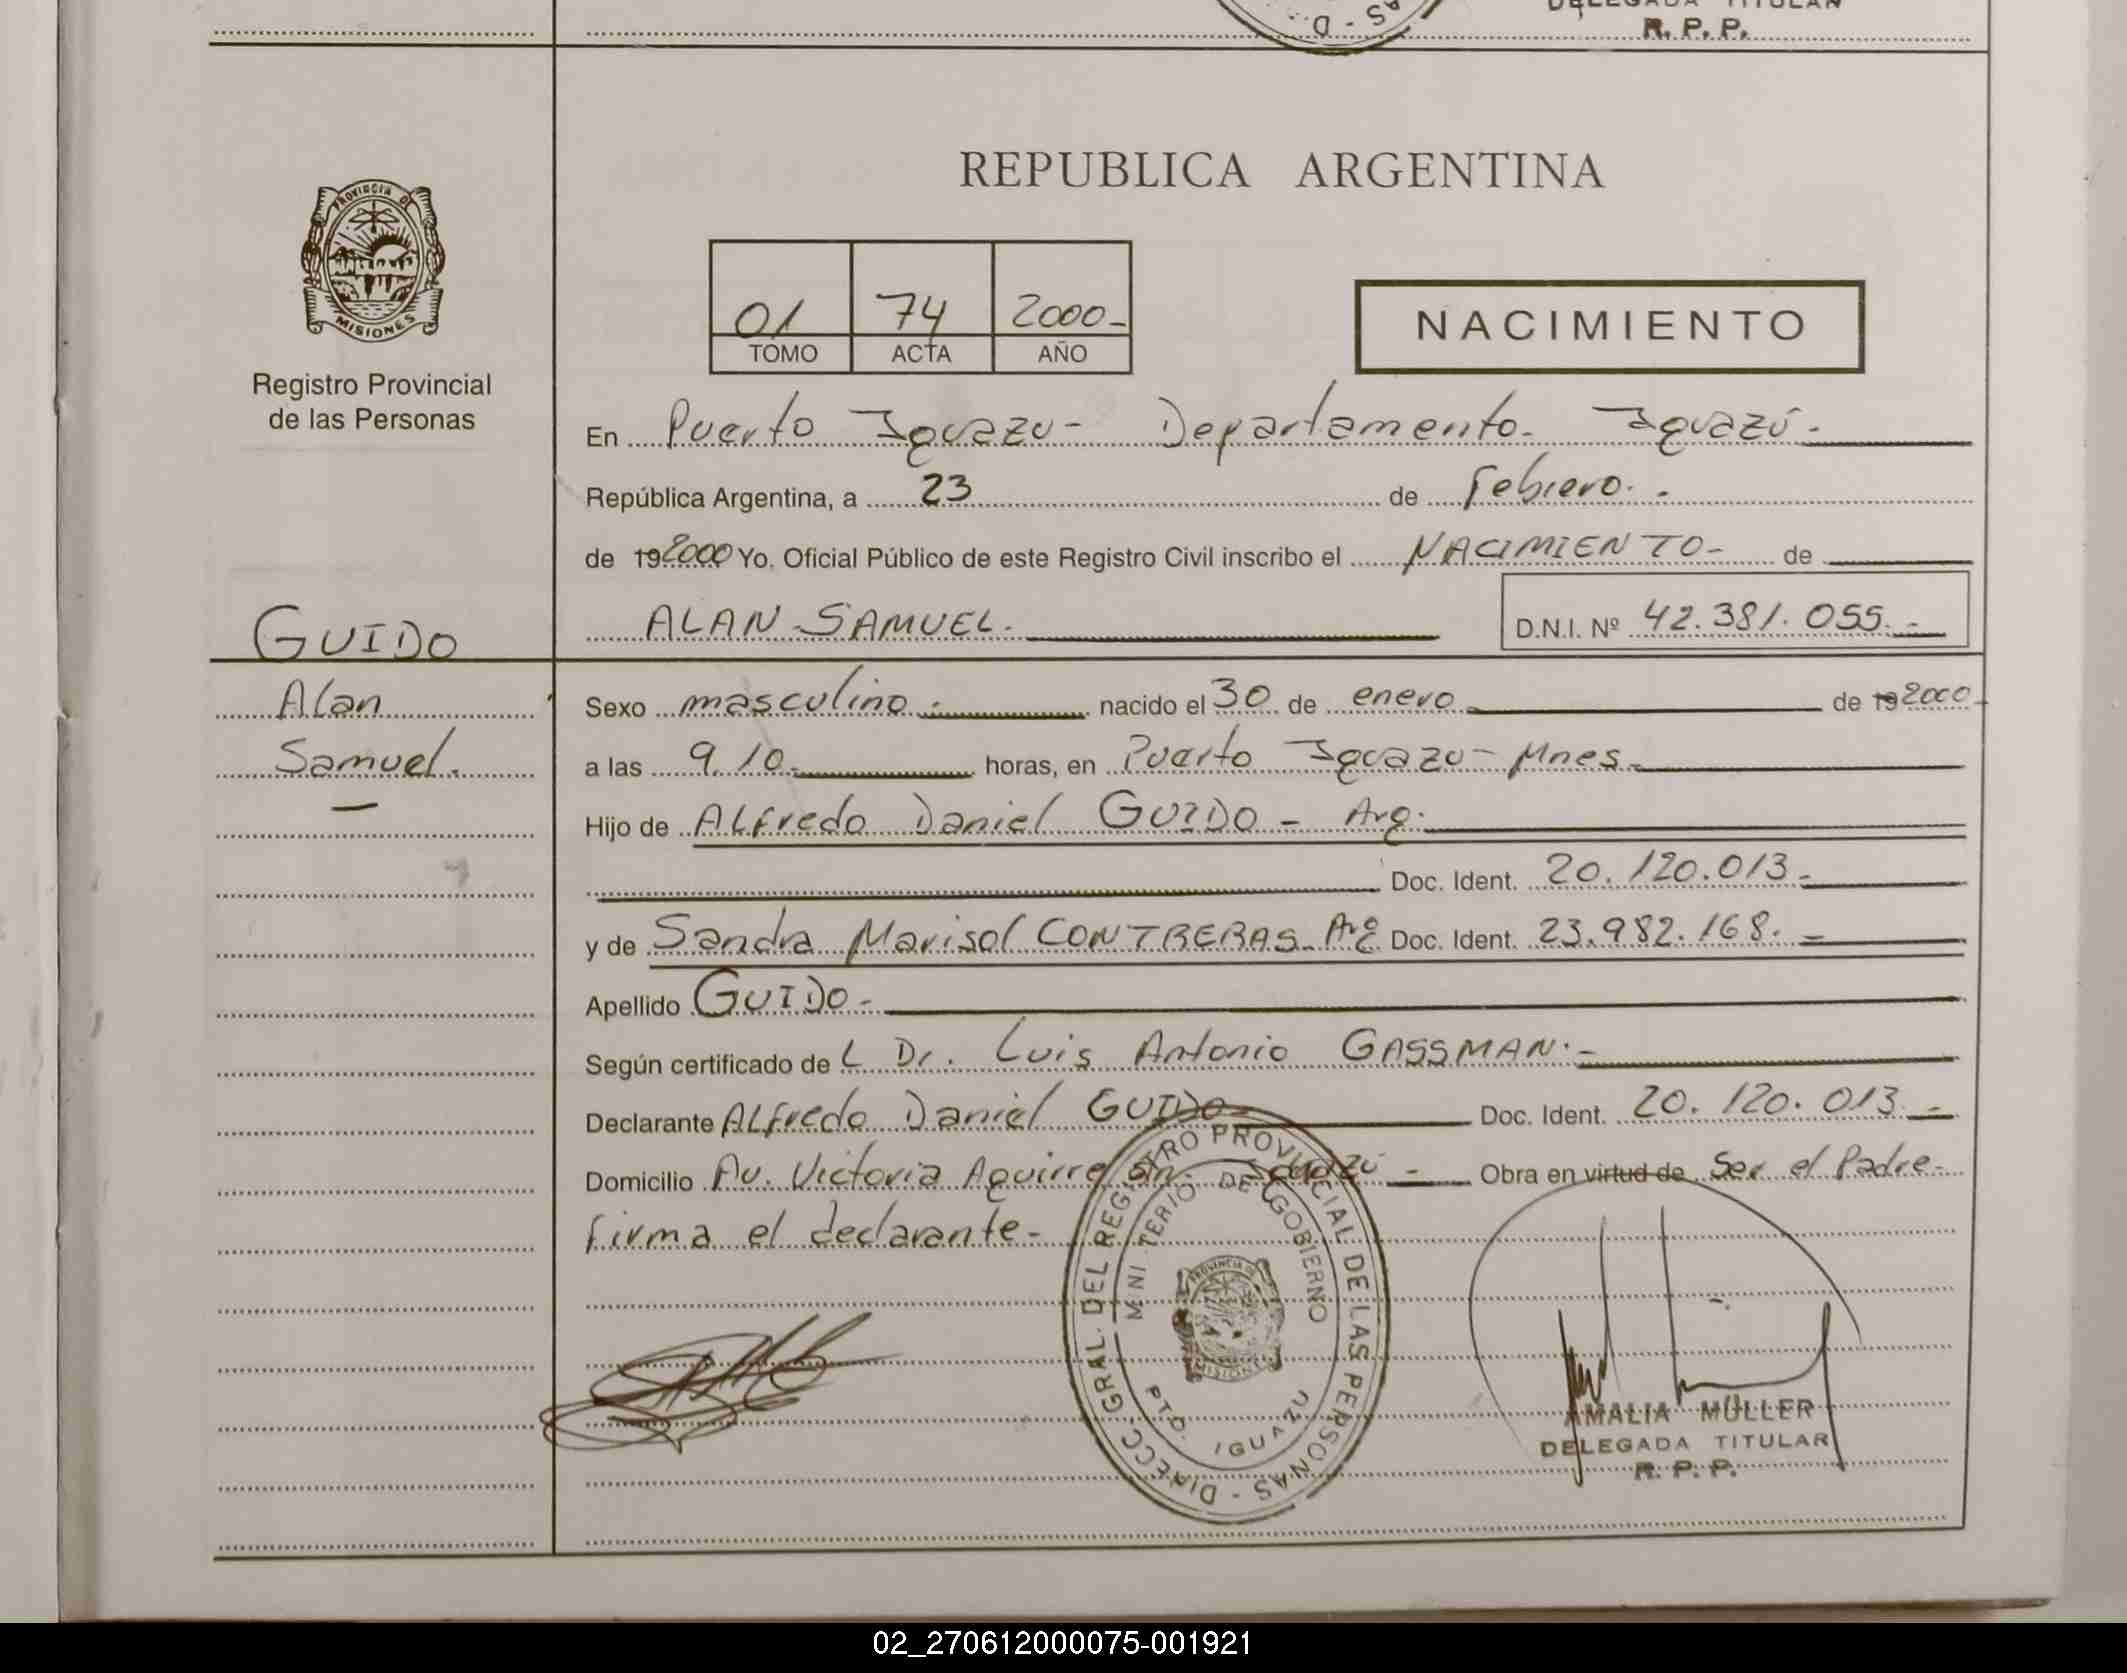 DELEGADA TITULAR
R. P. P.
REPUBLICA ARGENTINA
PROVINCIA DE
MISIONES
Registro Provincial
de las Personas
01 74 2000-
TOMO ACTA AÑO
NACIMIENTO
En Puerto Iguazu- Departamento- Iguazú-
República Argentina, a 23 de Febrero.
de 192000 Yo, Oficial Público de este Registro Civil inscribo el NACIMIENTO- de
ALAN SAMUEL.
D.N.I. Nº 42.381.055.-
GUIDO
Alan
Samuel.
Sexo masculino.- nacido el 30 de enero de 192000
a las 9.10- horas, en Puerto Iguazu- Mnes-
Hijo de Alfredo Daniel GUIDO - Arg.
Doc. Ident. 20.120.013-
y de Sandra Marisol CONTRERAS- Arg Doc. Ident. 23.982.168.-
Apellido GUIDO-
Según certificado de L Dr. Luis Antonio GASSMAN.-
Declarante Alfredo Daniel GUIDO- Doc. Ident. 20.120.013-
Domicilio Av. Victoria Aguirre s/n- Iguazú - Obra en virtud de Ser el Padre-
firma el declarante-
DIRECC. GRAL. DEL REGISTRO PROVINCIAL DE LAS PERSONAS -
MINI TERIO DE GOBIERNO
PROVINCIA DE
MISIONES
PTO. IGUAZU
AMALIA MÜLLER
DELEGADA TITULAR
R. P. P.
02_270612000075-001921